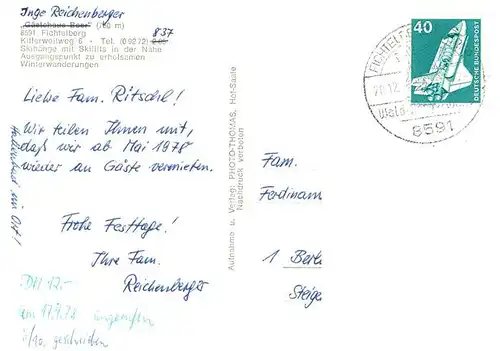 Inge Reichenberger
„Gästehaus Beer" (780 m)
8591 Fichtelberg 837
Kitterweilweg 6 - Tel. (0 92 72)
Skihänge mit Skilifts in der Nähe
Ausgangspunkt zu erholsamen
Winterwanderungen
Liebe Fam. Ritschel!
Wir teilen Ihnen mit,
daß wir ab Mai 1978
wieder an Gäste vermieten.
Frohe Festtage!
Ihre Fam.
Reichenberger
Hallenbad im Ort!
DM 12.-
am 17.9.78 angerufen
geschrieben
Aufnahme u. Verlag: PHOTO-THOMAS, Hof-Saale
Nachdruck verboten
40
DEUTSCHE BUNDESPOST
8591
Fam.
Ferdinan
1 Berl
Steige